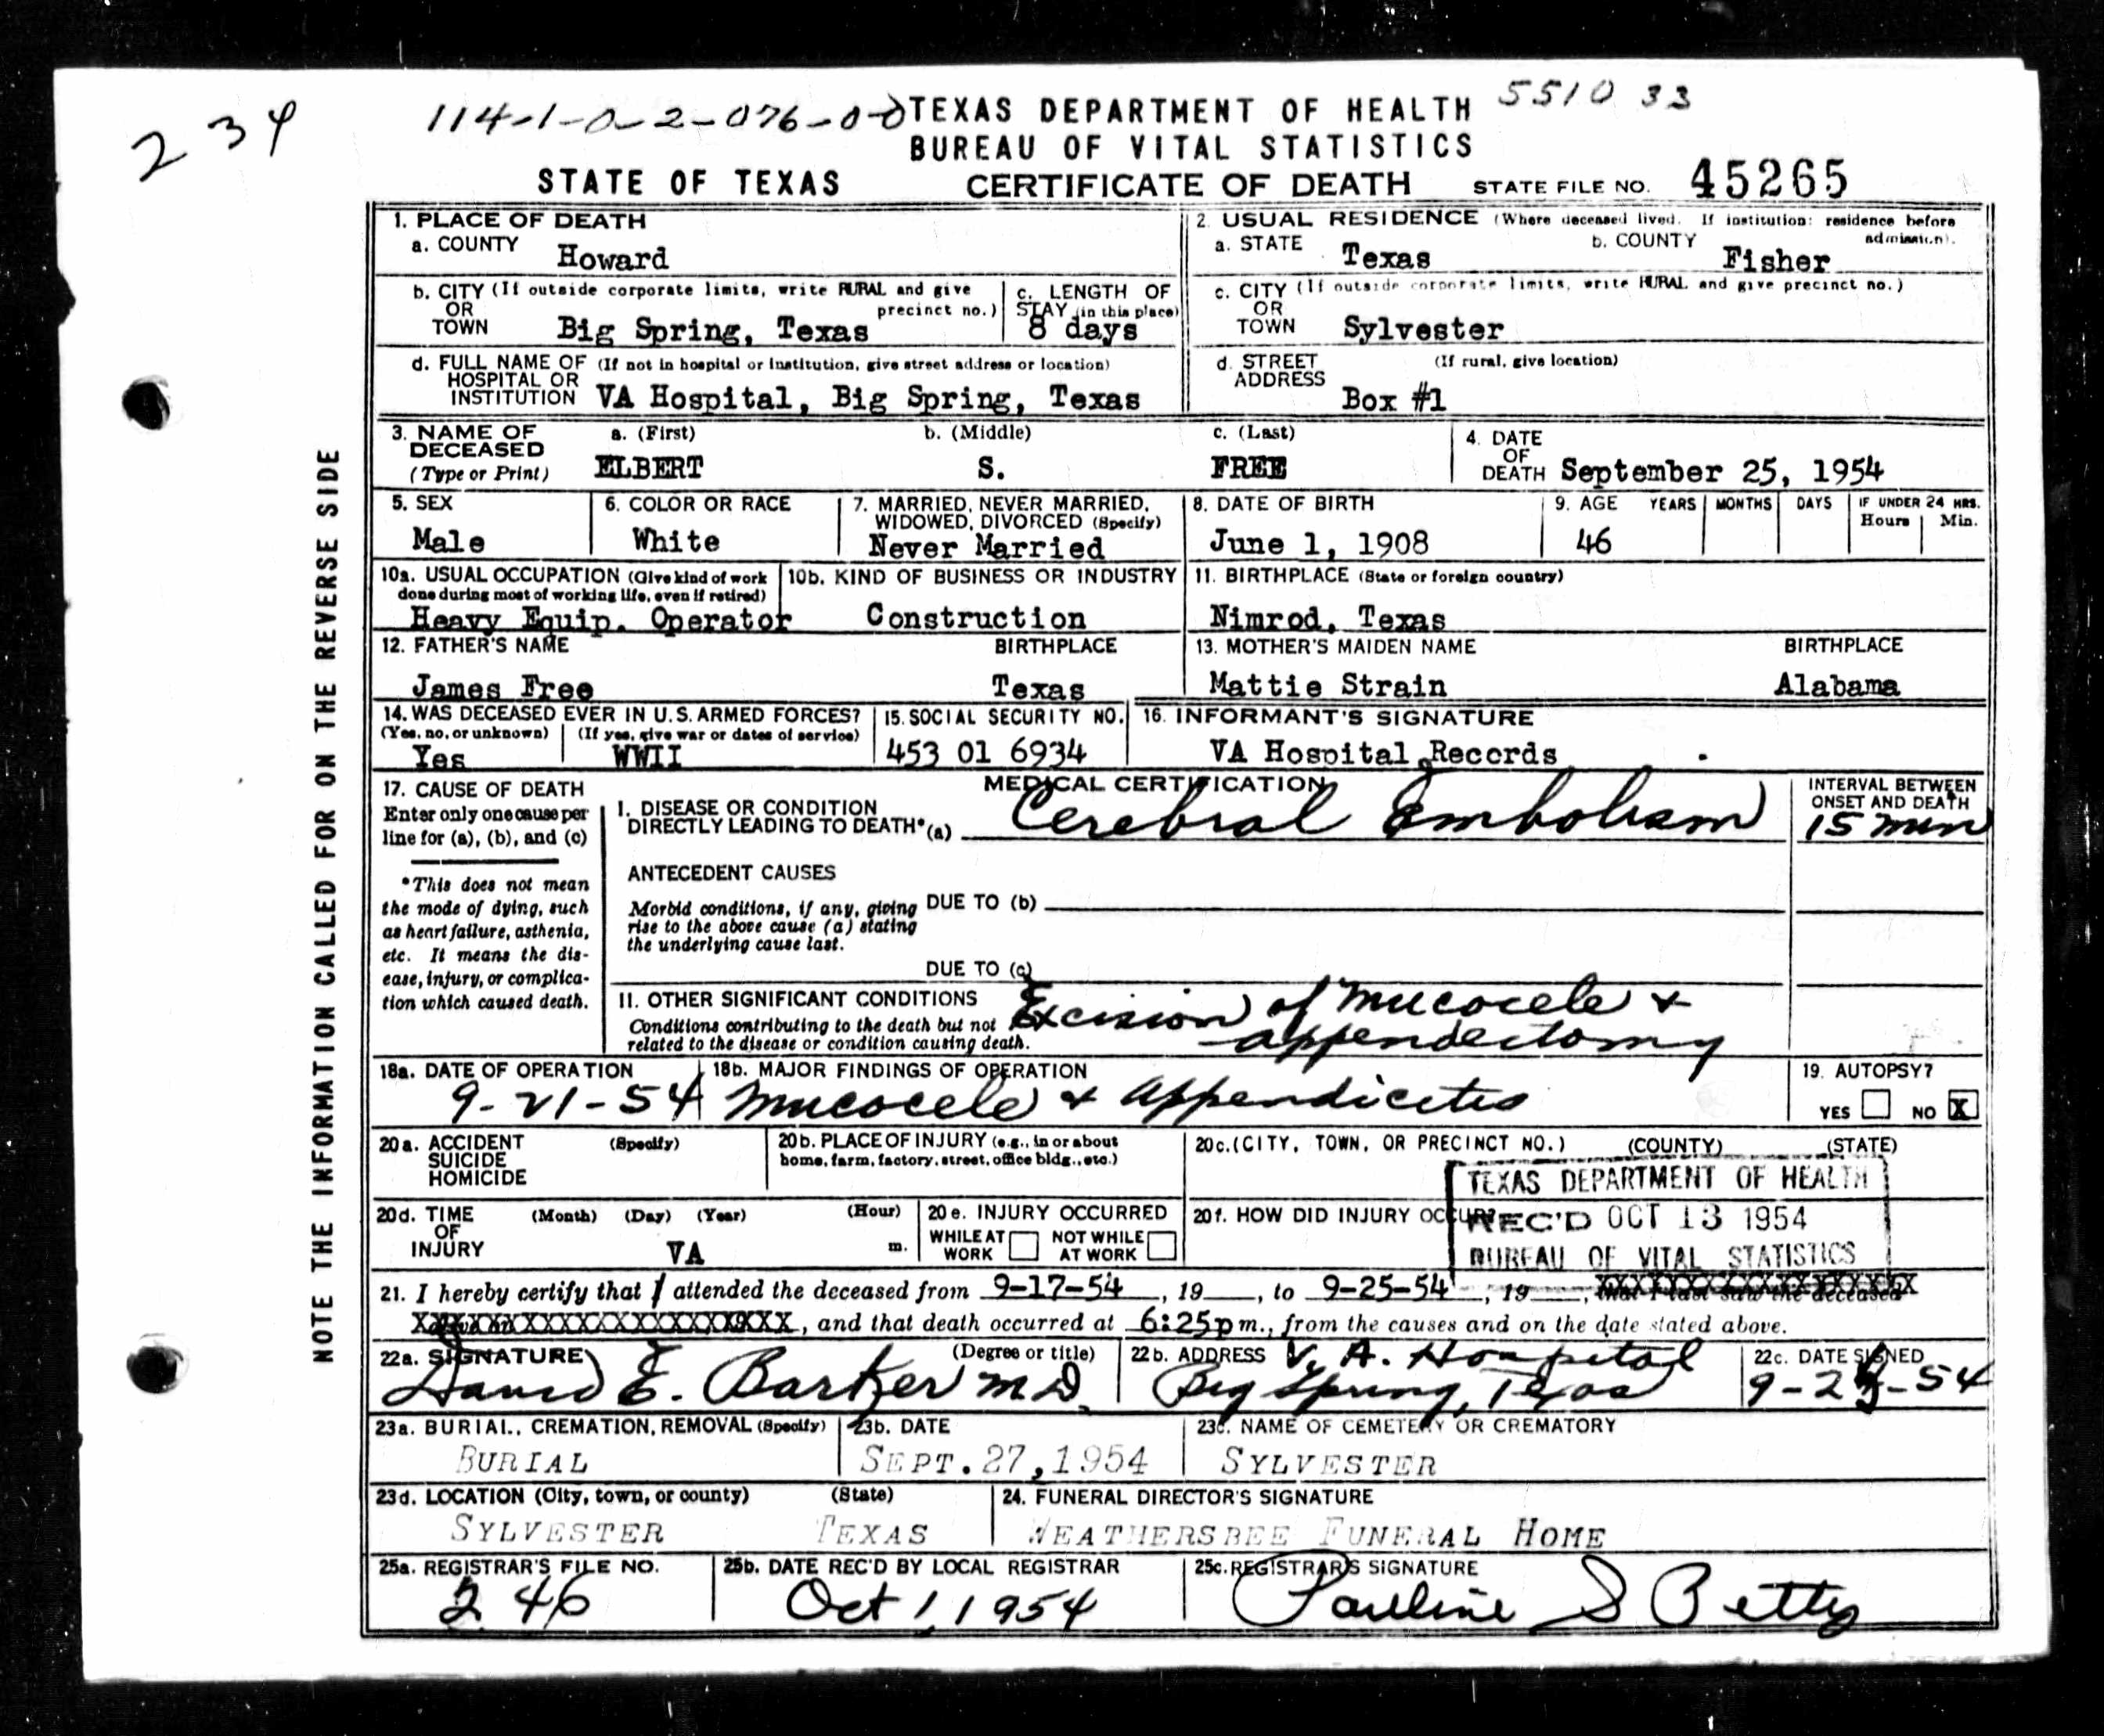 234
114-1-0-2-076-0-0
5510 33
TEXAS DEPARTMENT OF HEALTH
BUREAU OF VITAL STATISTICS
STATE OF TEXAS CERTIFICATE OF DEATH STATE FILE NO. 45265
NOTE THE INFORMATION CALLED FOR ON THE REVERSE SIDE
1. PLACE OF DEATH
a. COUNTY Howard
2. USUAL RESIDENCE (Where deceased lived. If institution: residence before admission).
a. STATE Texas b. COUNTY Fisher
b. CITY (If outside corporate limits, write RURAL and give precinct no.)
OR
TOWN Big Spring, Texas
c. LENGTH OF
STAY (in this place)
8 days
c. CITY (If outside corporate limits, write RURAL and give precinct no.)
OR
TOWN Sylvester
d. FULL NAME OF (If not in hospital or institution, give street address or location)
HOSPITAL OR
INSTITUTION VA Hospital, Big Spring, Texas
d. STREET (If rural, give location)
ADDRESS
Box #1
3. NAME OF DECEASED (Type or Print)
a. (First) b. (Middle) c. (Last)
ELBERT S. FREE
4. DATE
OF
DEATH September 25, 1954
5. SEX
Male
6. COLOR OR RACE
White
7. MARRIED, NEVER MARRIED,
WIDOWED, DIVORCED (Specify)
Never Married
8. DATE OF BIRTH
June 1, 1908
9. AGE YEARS MONTHS DAYS IF UNDER 24 HRS.
Hours Min.
46
10a. USUAL OCCUPATION (Give kind of work
done during most of working life, even if retired)
Heavy Equip. Operator
10b. KIND OF BUSINESS OR INDUSTRY
Construction
11. BIRTHPLACE (State or foreign country)
Nimrod, Texas
12. FATHER'S NAME BIRTHPLACE
James Free Texas
13. MOTHER'S MAIDEN NAME BIRTHPLACE
Mattie Strain Alabama
14. WAS DECEASED EVER IN U.S. ARMED FORCES?
(Yes, no, or unknown) (If yes, give war or dates of service)
Yes WWII
15. SOCIAL SECURITY NO.
453 01 6934
16. INFORMANT'S SIGNATURE
VA Hospital Records
17. CAUSE OF DEATH
Enter only one cause per
line for (a), (b), and (c)
*This does not mean
the mode of dying, such
as heart failure, asthenia,
etc. It means the dis-
ease, injury, or complica-
tion which caused death.
MEDICAL CERTIFICATION
I. DISEASE OR CONDITION
DIRECTLY LEADING TO DEATH* (a) Cerebral Embolism
INTERVAL BETWEEN
ONSET AND DEATH
15 min
ANTECEDENT CAUSES
Morbid conditions, if any, giving
rise to the above cause (a) stating
the underlying cause last.
DUE TO (b)
DUE TO (c)
II. OTHER SIGNIFICANT CONDITIONS
Conditions contributing to the death but not
related to the disease or condition causing death.
Excision of mucocele +
appendectomy
18a. DATE OF OPERATION
9-21-54
18b. MAJOR FINDINGS OF OPERATION
Mucocele + Appendicitis
19. AUTOPSY?
YES NO X
20a. ACCIDENT (Specify)
SUICIDE
HOMICIDE
20b. PLACE OF INJURY (e.g., in or about
home, farm, factory, street, office bldg., etc.)
20c. (CITY, TOWN, OR PRECINCT NO.) (COUNTY) (STATE)
20d. TIME (Month) (Day) (Year) (Hour)
OF
INJURY VA m.
20e. INJURY OCCURRED
WHILE AT WORK NOT WHILE AT WORK
20f. HOW DID INJURY OCCUR?
TEXAS DEPARTMENT OF HEALTH
REC'D OCT 13 1954
BUREAU OF VITAL STATISTICS
21. I hereby certify that I attended the deceased from 9-17-54, 19 , to 9-25-54, 19 , that I last saw the deceased
XXXXXXXXXXXXXXXX, and that death occurred at 6:25p m., from the causes and on the date stated above.
22a. SIGNATURE (Degree or title)
E. Barker M D.
22b. ADDRESS V. A. Hospital
Big Spring, Texas
22c. DATE SIGNED
23a. BURIAL, CREMATION, REMOVAL (Specify)
BURIAL
23b. DATE
SEPT. 27, 1954
23c. NAME OF CEMETERY OR CREMATORY
SYLVESTER
23d. LOCATION (City, town, or county) (State)
SYLVESTER TEXAS
24. FUNERAL DIRECTOR'S SIGNATURE
WEATHERSBEE FUNERAL HOME
25a. REGISTRAR'S FILE NO.
246
25b. DATE REC'D BY LOCAL REGISTRAR
Oct 1, 1954
25c. REGISTRAR'S SIGNATURE
Pauline S Petty